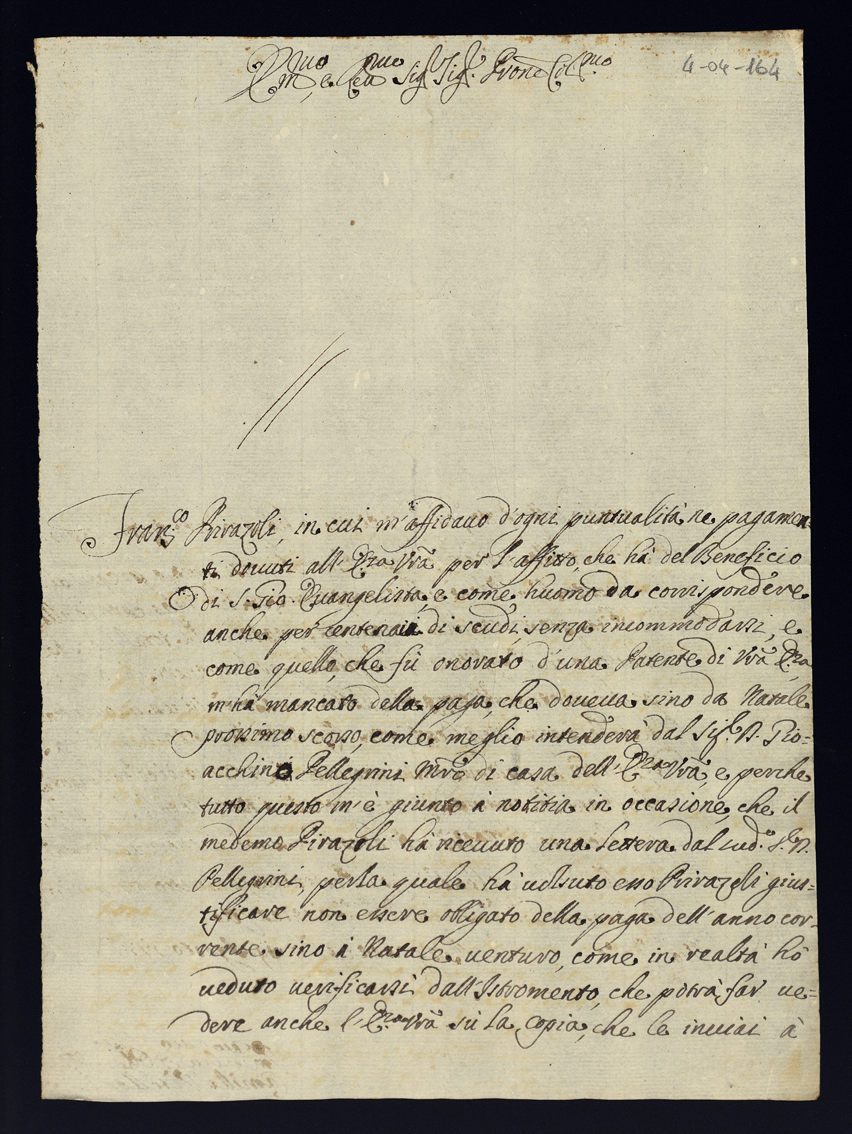 Em.mo e Rev.mo Sig.r Sig.r Prone Col.mo
4-04-164
Fran.co Pirazoli, in cui m'affidavo d'ogni puntualità ne pagamen-
ti dovuti all'Em.za Vrã per l'affitto, che hà del Beneficio
di S. Gio. Evangelista, e come huomo da corrispondere
anche per centenaia di scudi senza incommodarsi, e
come quello, che fù onorato d'una Patente di Vrã Em.za,
m'hà mancato della paga, che doveva sino da Natale
prossimo scorso, come meglio intenderà dal Sig.r D. Gio-
acchino Pellegrini Mrõ di casa dell'Em.za Vrã, e perche
tutto questo m'è giunto à notitia in occasione, che il
medemo Pirazoli hà ricevuto una lettera dal sud.o S.r D.
Pellegrini, per la quale hà volsuto esso Pirazoli gius-
tificare non essere obligato della paga dell'anno cor-
rente sino à Natale venturo, come in realtà hò
veduto verificarsi dall'Istromento, che potrà far ve-
dere anche l'Em.za Vrã sù la copia, che le inviai à